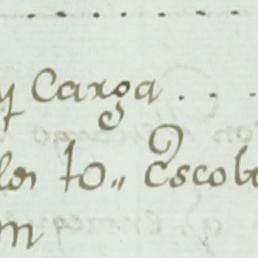 y Carga . . .
los to,, Escob
m